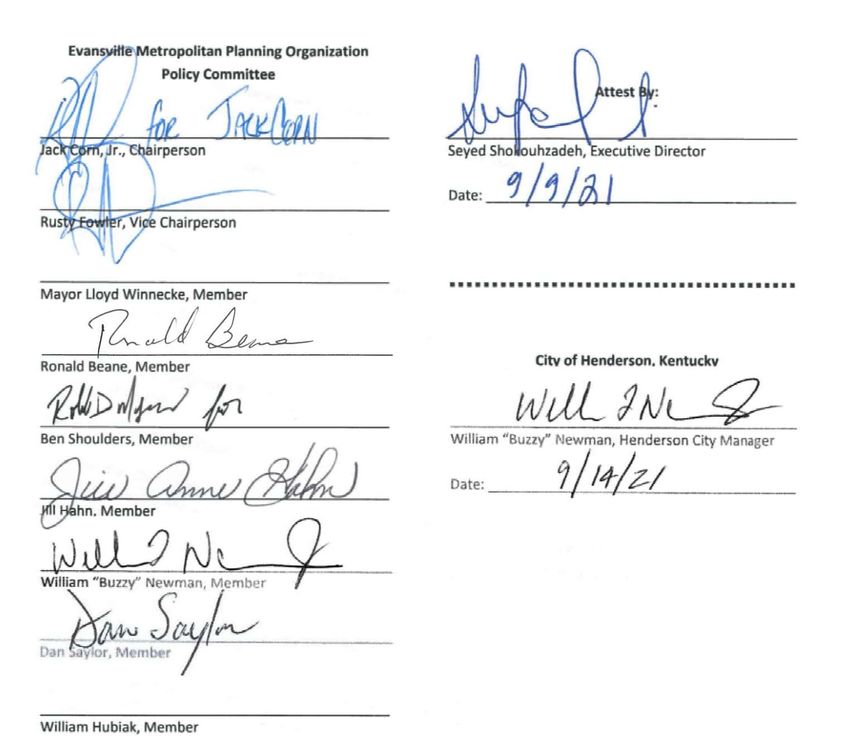 Evansville Metropolitan Planning Organization
Policy Committee
for JACK CORN
Jack Corn, Jr., Chairperson
Rusty Fowler, Vice Chairperson
Mayor Lloyd Winnecke, Member
Ronald Beane
Ronald Beane, Member
for
Ben Shoulders, Member
Jill Anne Hahn
Jill Hahn, Member
William "Buzzy" Newman, Member
Dan Saylor
Dan Saylor, Member
William Hubiak, Member
Attest By:
Seyed Shokouhzadeh, Executive Director
Date: 9/9/21
City of Henderson, Kentucky
William "Buzzy" Newman, Henderson City Manager
Date: 9/14/21